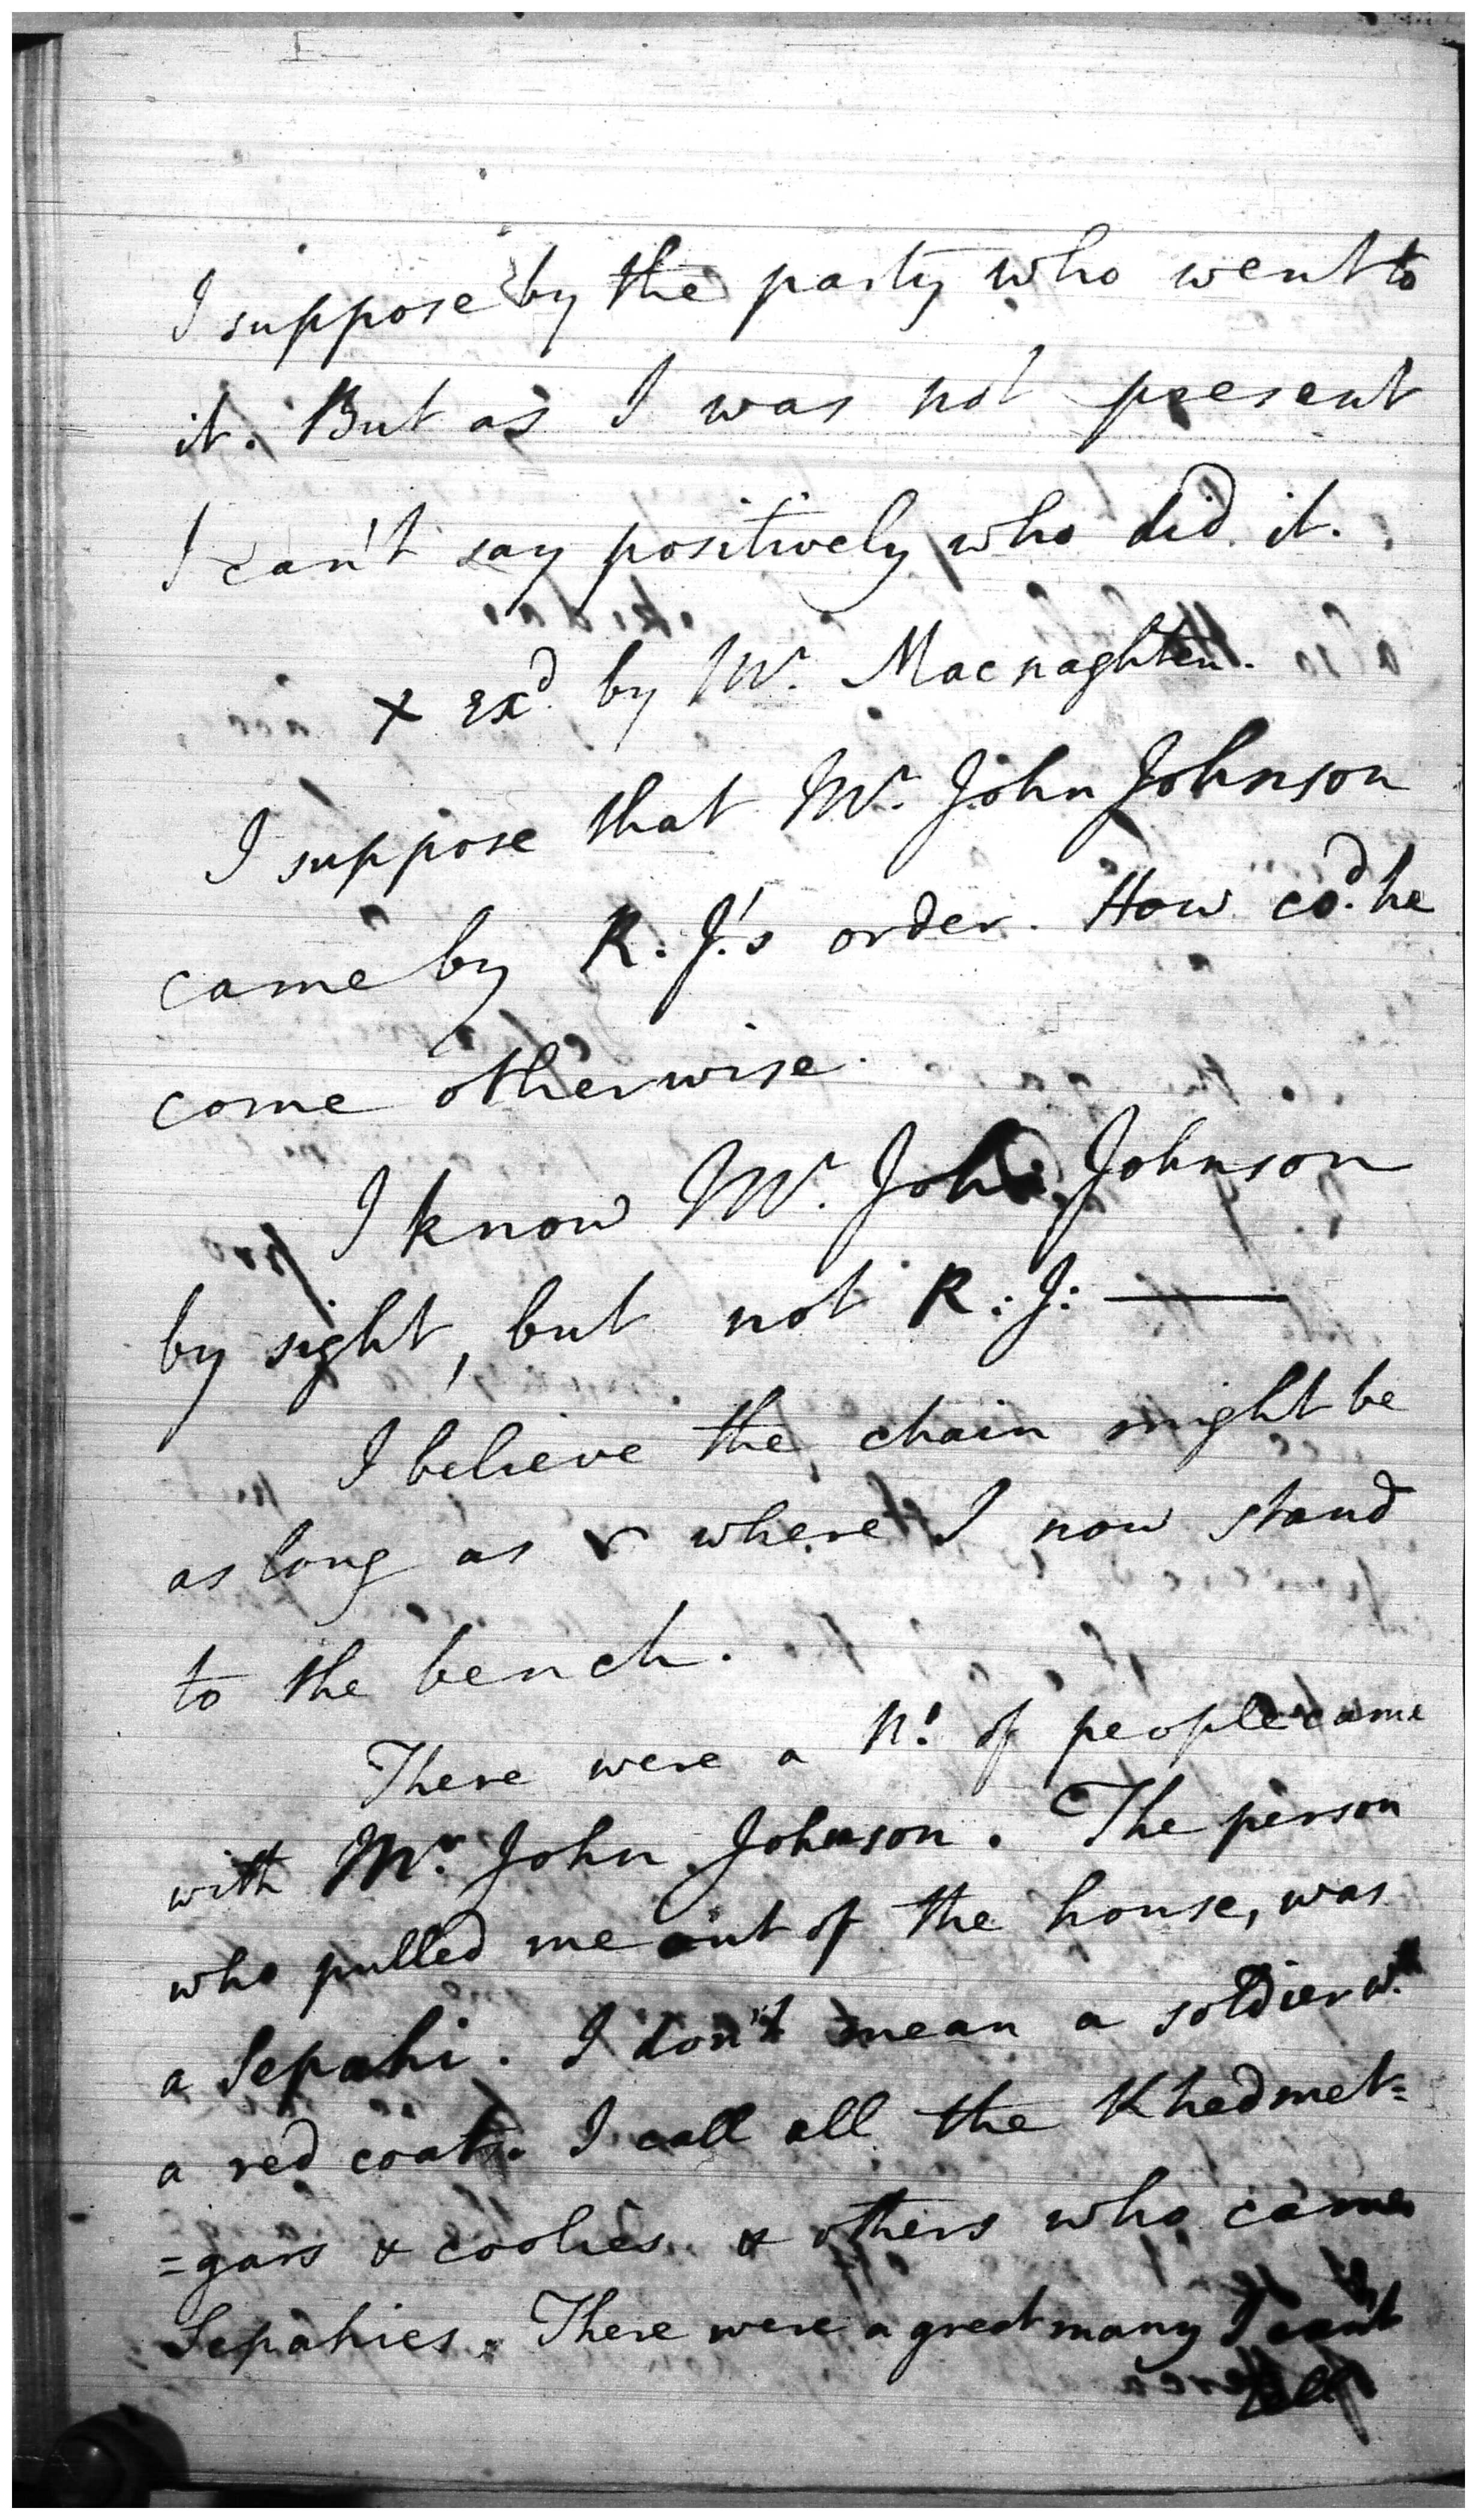 I suppose by the party who went to
it. But as I was not present
I can't say positively who did it.
x exd. by Mr. Macnaghten.
I suppose that Mr. John Johnson
came by R. J.'s order. How cod. he
come otherwise.
I know Mr. John Johnson
by sight, but not R. J: —
I believe the chain might be
as long as where I now stand
to the bench.
There were a No. of people came
with Mr. John Johnson. The person
who pulled me out of the house, was
a Sepahi. I don't mean a soldier wt.
a red coat. I call all the Khedmet=
=gars & coolies & others who came
Sepahies. There were a great many I can't
tell